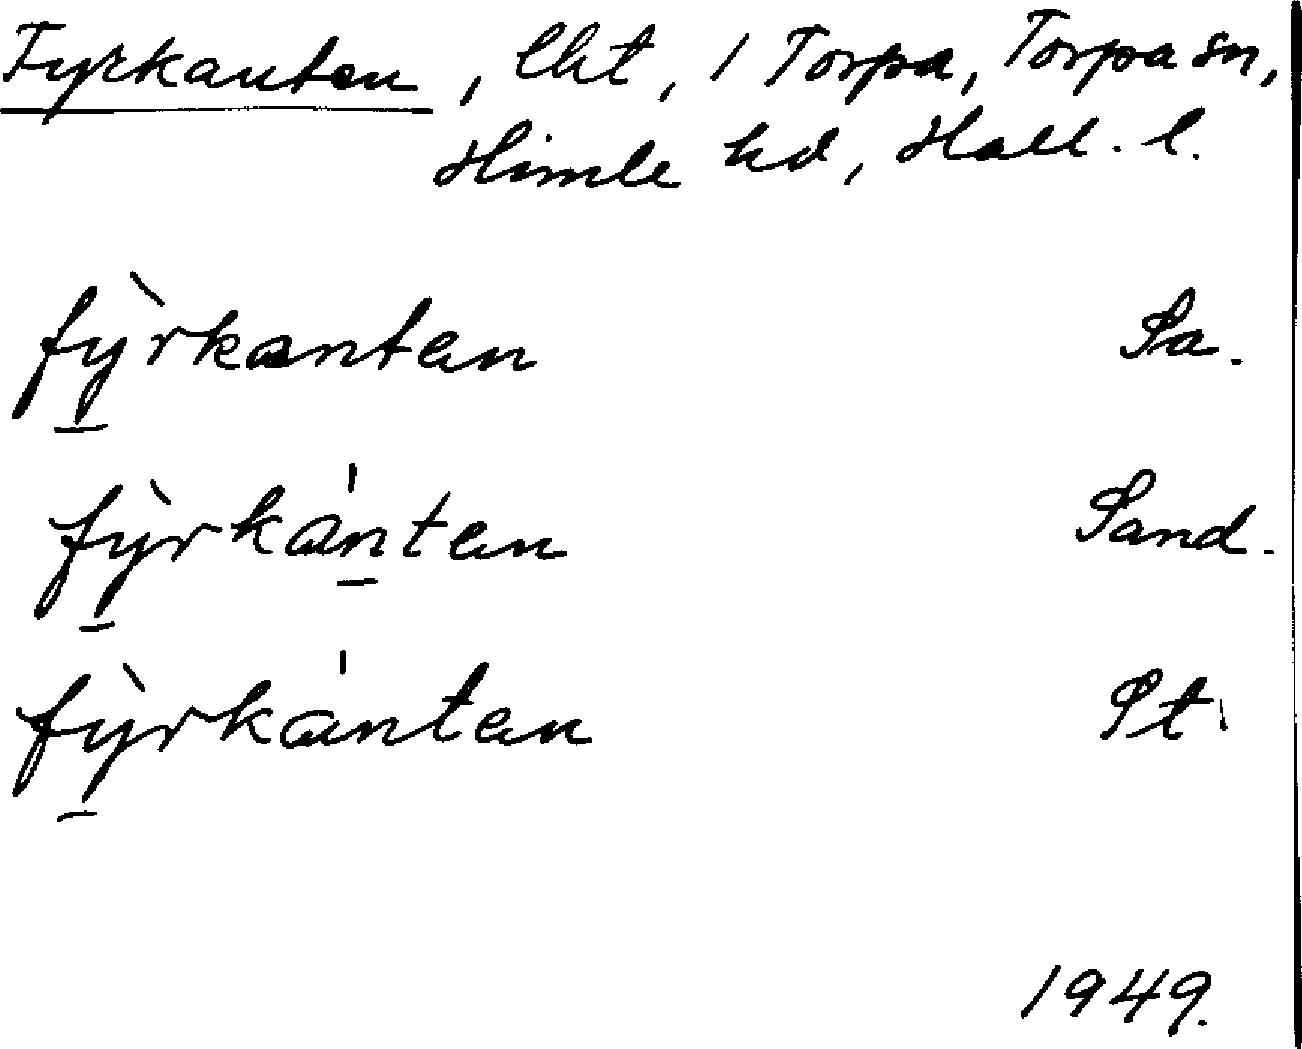 Fyrkanten, lht, 1 Torpa, Torpa sn,
Himle hd, Hall. l.
fỳrkantan Sa.
fỳrkántan Sand.
fỳrkántan St.
1949.